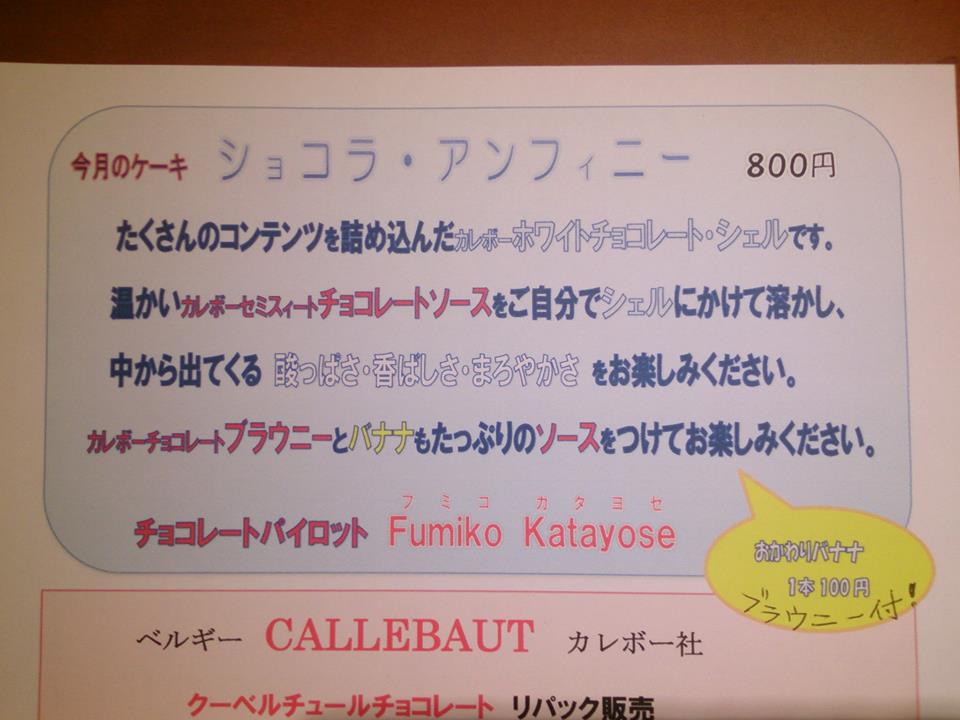 今月のケーキ ショコラ・アンフィニー 800円
たくさんのコンテンツを詰め込んだカレボーホワイトチョコレート・シェルです。
温かいカレボーセミスィートチョコレートソースをご自分でシェルにかけて溶かし、
中から出てくる 酸っぱさ・香ばしさ・まろやかさ をお楽しみください。
カレボーチョコレートブラウニーとバナナもたっぷりのソースをつけてお楽しみください。
フミコ カタヨセ
チョコレートパイロット Fumiko Katayose
おかわりバナナ
1本100円
ブラウニー付!
ベルギー CALLEBAUT カレボー社
クーベルチュールチョコレート リパック販売